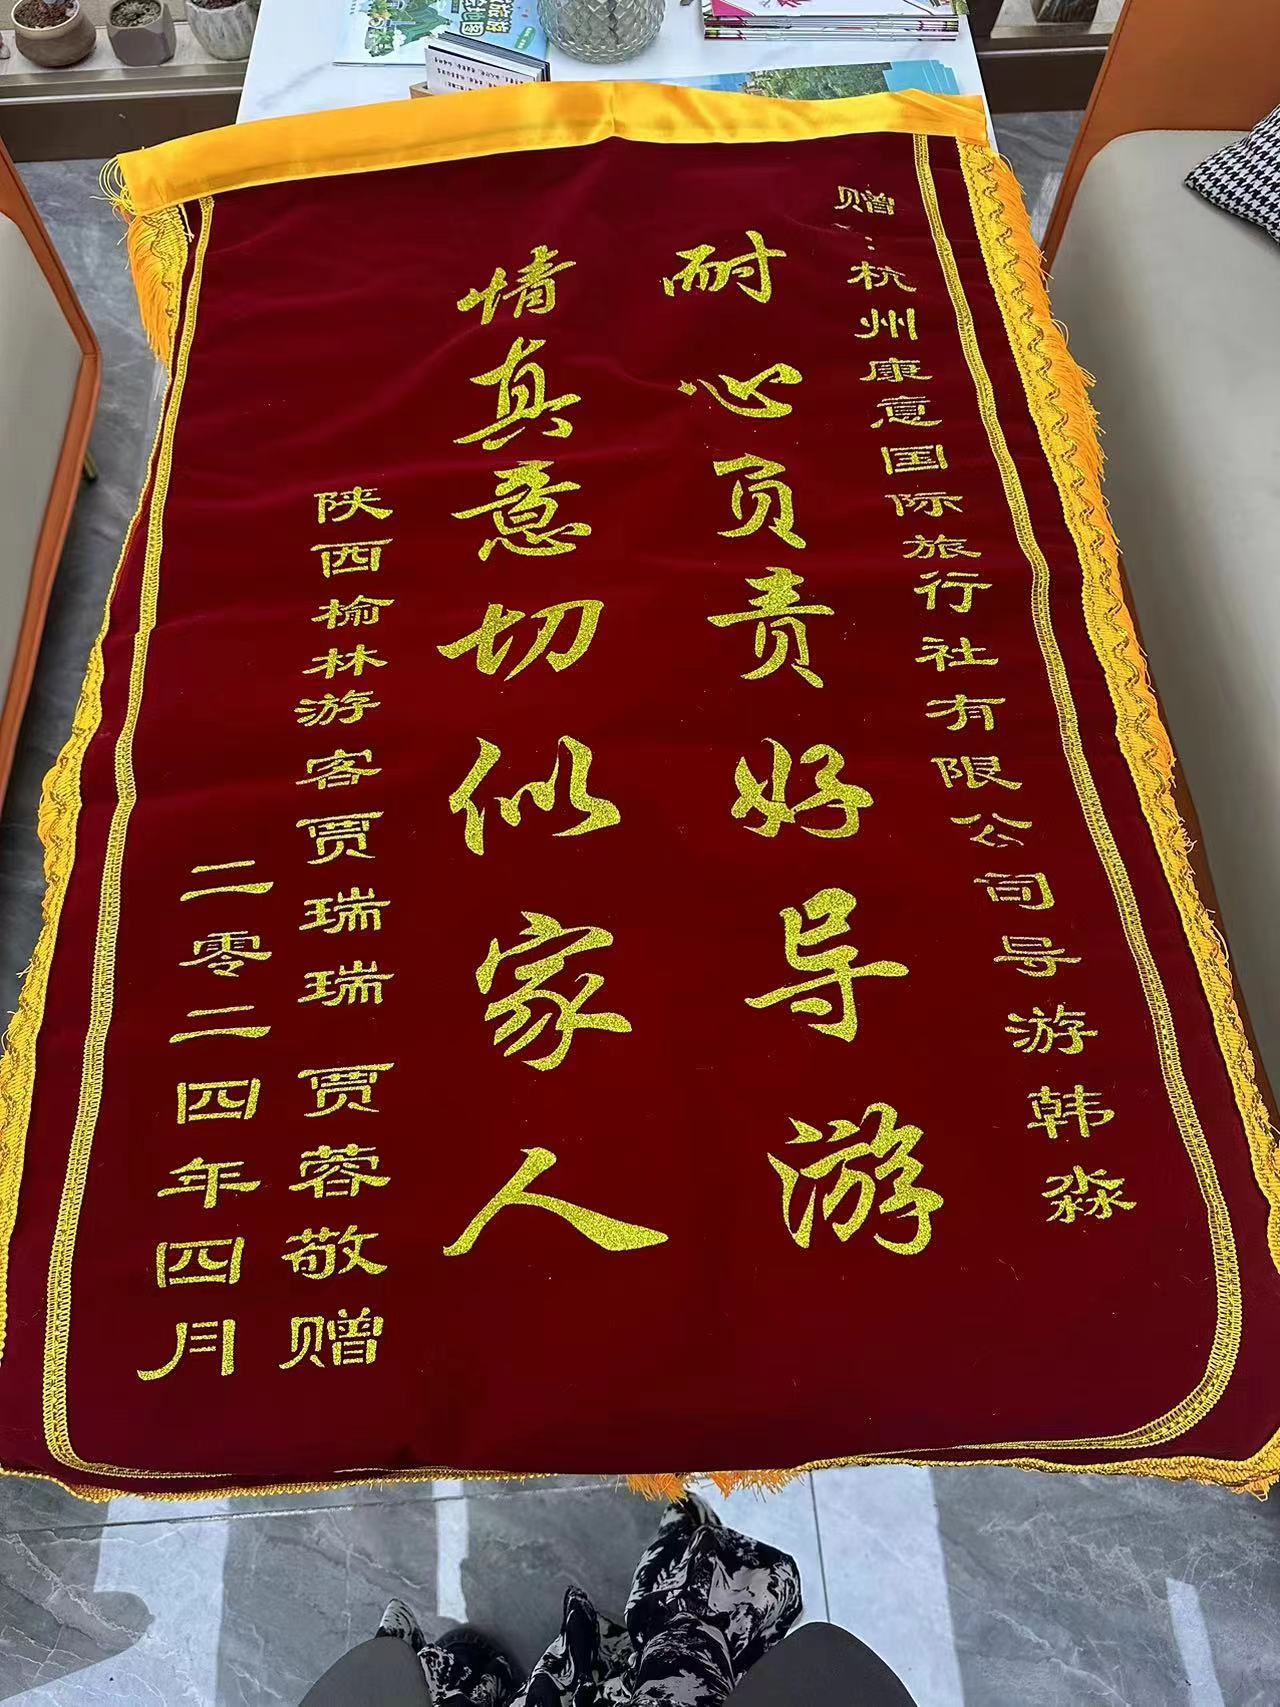 赠:杭州康意国际旅行社有限公司导游韩淼
耐心负责好导游
情真意切似家人
陕西榆林游客贾瑞瑞 贾蓉敬赠
二零二四年四月